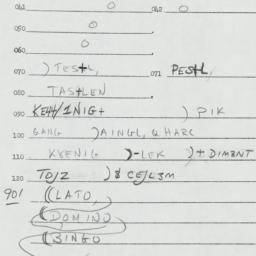 041 0 042 0
050 0
060 0
070 ) TESTL, 071 PESTL,
080 TASTLEN
090 KEHT/INIG+ ) PIK
100 GANG ) AINGL, Q HARC
110 KYENIG )-LEK )+ DIMENT
120 TOJZ )
901 ((LATO,
(DOMINO
(BINGO